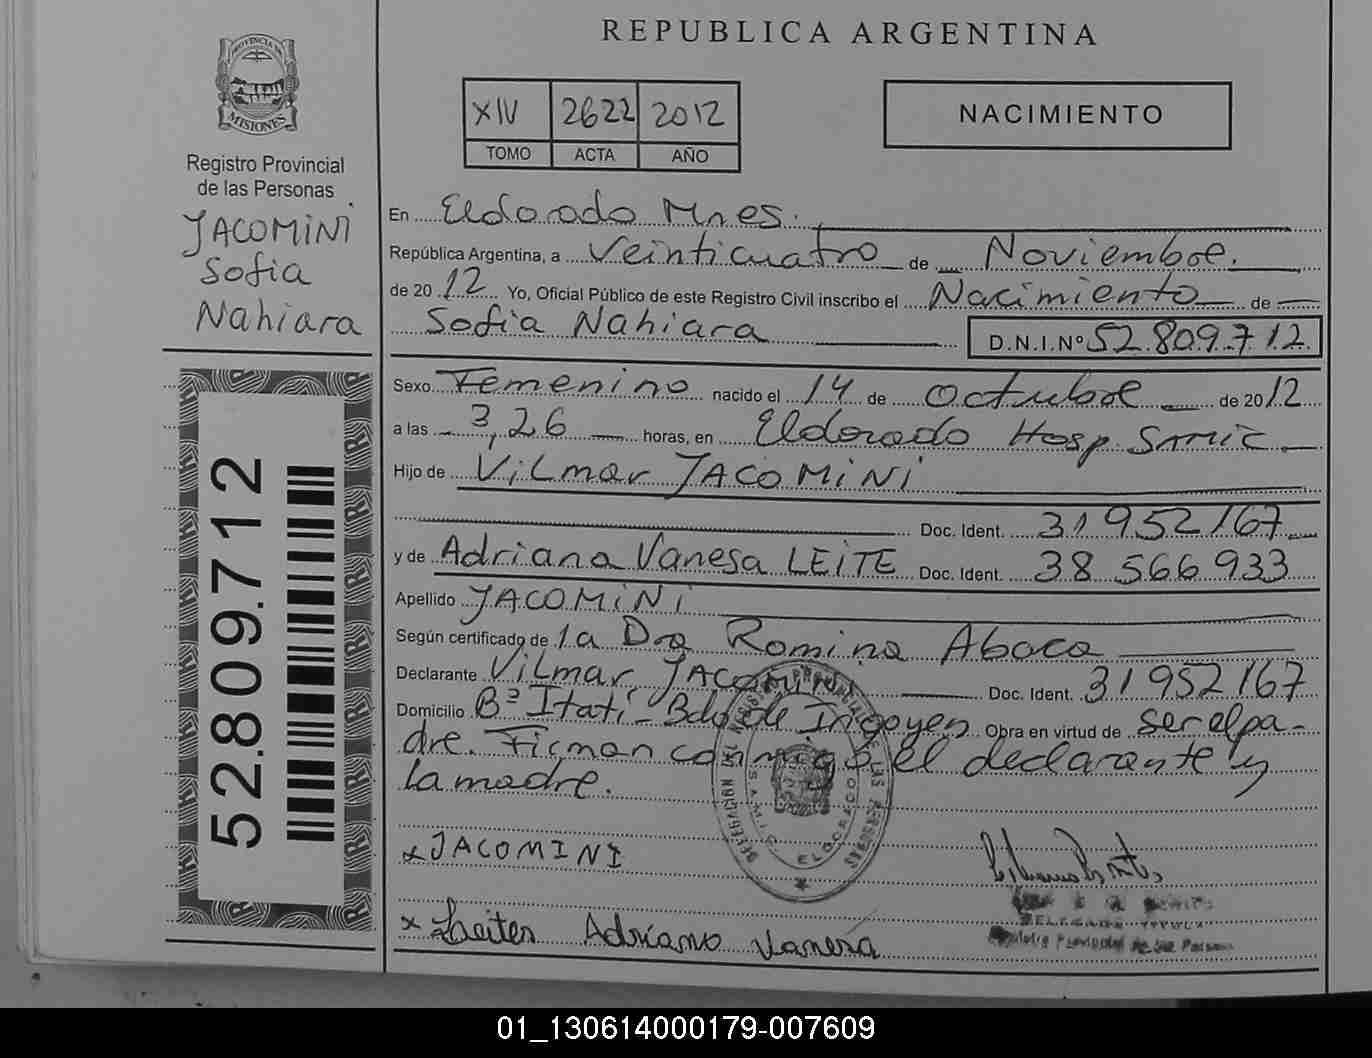 REPUBLICA ARGENTINA
PROVINCIA DE
MISIONES
Registro Provincial
de las Personas
JACOMINI
Sofia
Nahiara
52.809.712
XIV 2622 2012
TOMO ACTA AÑO
NACIMIENTO
En Eldorado Mnes.
República Argentina, a Veinticuatro de Noviembre.
de 2012 Yo, Oficial Público de este Registro Civil inscribo el Nacimiento de
Sofia Nahiara D.N.I.Nº 52.809.712.
Sexo Femenino nacido el 14 de Octubre de 2012
a las 3,26 horas, en Eldorado Hosp. SAMIC
Hijo de Vilmar JACOMINI
Doc. Ident. 31952167
y de Adriana Vanesa LEITE Doc. Ident. 38 566 933
Apellido JACOMINI
Según certificado de la Dra Romina Abaca
Declarante Vilmar JACOMINI Doc. Ident. 31952167
Domicilio Bº Itatí - Bdo de Irigoyen Obra en virtud de ser el pa-
dre. Firman conmigo el declarante y
la madre.
x JACOMINI
x Leites Adriana Vanesa
01_130614000179-007609